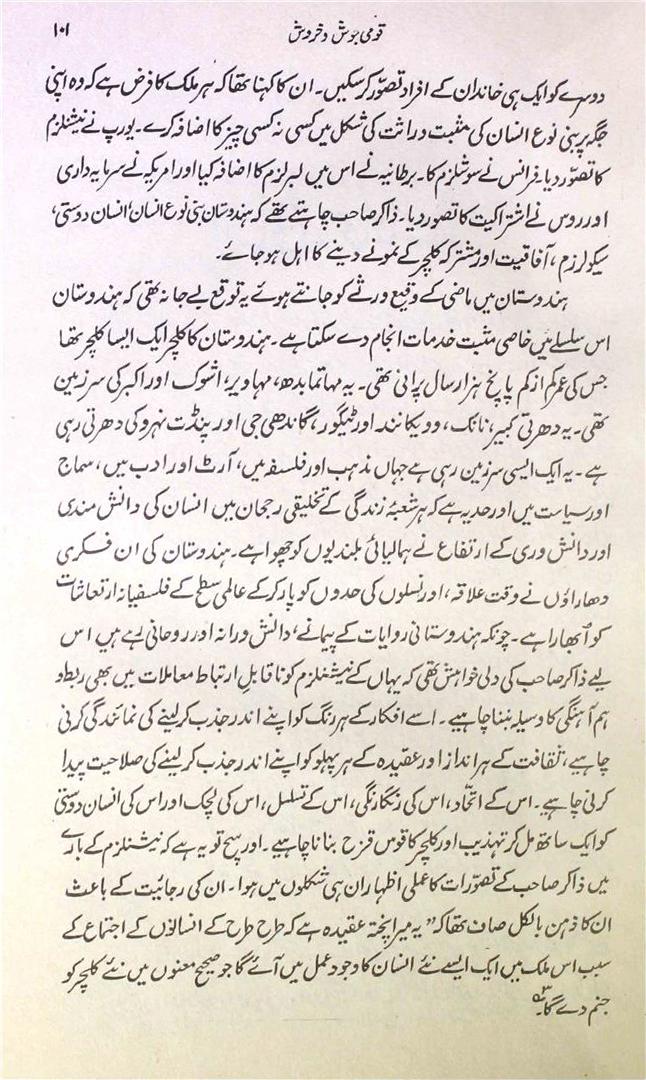 قومی جوش و خروش ۱۰۱
دوسرے کو ایک ہی خاندان کے افراد تصوّر کر سکیں۔ ان کا کہنا تھا کہ ہر ملک کا فرض ہے کہ وہ اپنی
جگہ پر بنی نوع انسان کی مثبت وراثت کی شکل میں کسی نہ کسی چیز کا اضافہ کرے۔ یورپ نے نیشنلزم
کا تصوّر دیا۔ فرانس نے سوشلزم کا۔ برطانیہ نے اس میں لبرلزم کا اضافہ کیا اور امریکہ نے سرمایہ داری
اور روس نے اشتراکیت کا تصور دیا۔ ذاکر صاحب چاہتے تھے کہ ہندوستان بنی نوع انسان، انسان دوستی،
سیکولرزم، آفاقیت اور مشترکہ کلچر کے نمونے دینے کا اہل ہو جائے۔
ہندوستان میں ماضی کے وقیع ورثے کو جانتے ہوئے یہ توقع بے جا نہ تھی کہ ہندوستان
اس سلسلے میں خاصی مثبت خدمات انجام دے سکتا ہے۔ ہندوستان کا کلچر ایک ایسا کلچر تھا
جس کی عمر کم از کم پانچ ہزار سال پرانی تھی۔ یہ مہاتما بدھ، مہاویر، اشوک اور اکبر کی سرزمین
تھی۔ یہ دھرتی کبیر، نانک، وویکانند اور ٹیگور، گاندھی جی اور پنڈت نہرو کی دھرتی رہی
ہے۔ یہ ایک ایسی سرزمین رہی ہے جہاں مذہب اور فلسفہ میں، آرٹ اور ادب میں، سماج
اور سیاست میں اور حد یہ ہے کہ ہر شعبۂ زندگی کے تخلیقی رجحان میں انسان کی دانش مندی
اور دانش وری کے ارتفاع نے ہمالیائی بلندیوں کو چھوا ہے۔ ہندوستان کی ان فکری
دھاراؤں نے وقت علاقہ، اور نسلوں کی حدوں کو پار کر کے عالمی سطح کے فلسفیانہ ارتعاشات
کو اُبھارا ہے۔ چونکہ ہندوستانی روایات کے پیمانے، دانش ورانہ اور روحانی رہے ہیں اس
لیے ذاکر صاحب کی دلی خواہش تھی کہ یہاں کے نیشنلزم کو ناقابلِ ارتباط معاملات میں بھی ربط و
ہم آہنگی کا وسیلہ بننا چاہیے۔ اسے افکار کے ہر رنگ کو اپنے اندر جذب کر لینے کی نمائندگی کرنی
چاہیے، ثقافت کے ہر انداز اور عقیدہ کے ہر پہلو کو اپنے اندر جذب کر لینے کی صلاحیت پیدا
کرنی چاہیے۔ اس کے اتحّاد، اس کی رنگا رنگی، اس کے تسلسل، اس کی لچک اور اس کی انسان دوستی
کو ایک ساتھ مل کر تہذیب اور کلچر کا قوس قزح بنانا چاہیے۔ اور سچ تو یہ ہے کہ نیشنلزم کے بارے
میں ذاکر صاحب کے تصوّرات کا عملی اظہار ان ہی شکلوں میں ہوا۔ ان کی رجائیت کے باعث
ان کا ذہن بالکل صاف تھا کہ ”یہ میرا پختہ عقیدہ ہے کہ طرح طرح کے انسانوں کے اجتماع کے
سبب اس ملک میں ایک ایسے نئے انسان کا وجود عمل میں آئے گا جو صحیح معنوں میں نئے کلچر کو
جنم دے گا۔